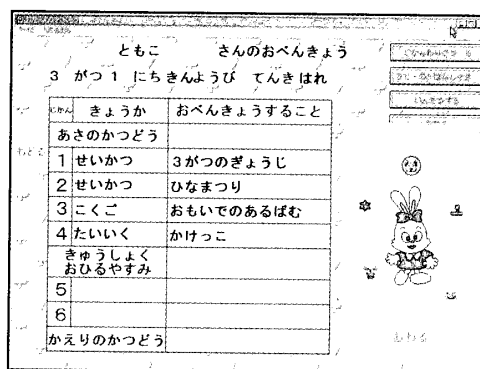 ともこ さんのおべんきょう
3 がつ 1 にち きんようび てんき はれ
じかん きょうか おべんきょうすること
あさのかつどう
1 せいかつ 3がつのぎょうじ
2 せいかつ ひなまつり
3 こくご おもいでのあるばむ
4 たいいく かけっこ
きゅうしょく
おひるやすみ
5
6
かえりのかつどう